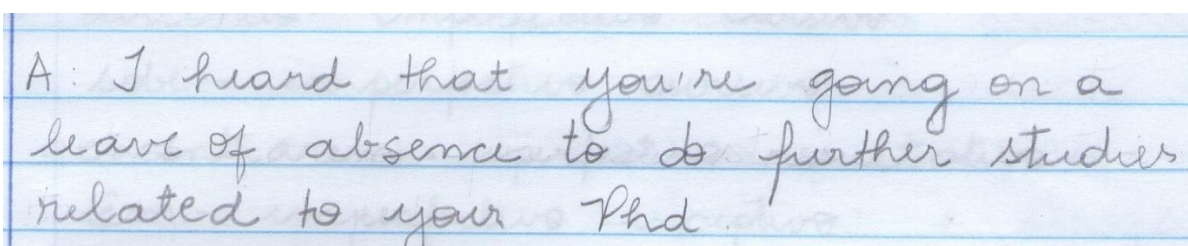 A: I heard that you're going on a
leave of absence to do further studies
related to your Phd.